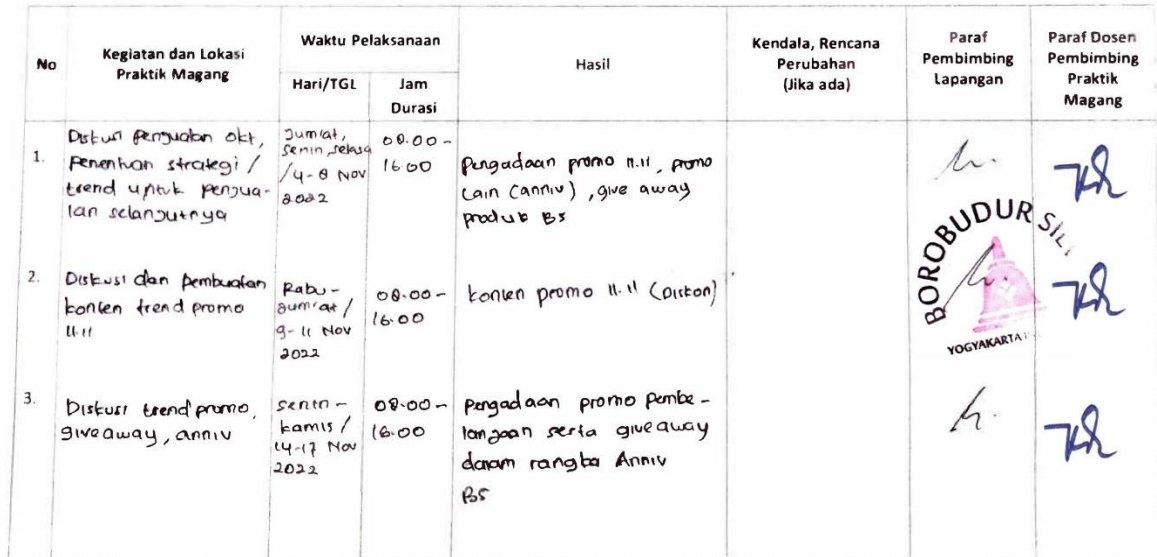 No
Kegiatan dan Lokasi
Praktik Magang
Waktu Pelaksanaan
Hari/TGL
Jam
Durasi
Hasil
Kendala, Rencana
Perubahan
(Jika ada)
Paraf
Pembimbing
Lapangan
Paraf Dosen
Pembimbing
Praktik
Magang
1.
Diskusi Penjualan okt,
Penentuan strategi /
trend untuk penjua-
lan selanjutnya
Jum'at,
senin, selasa
/4-8 Nov
2022
08.00 -
16.00
Pengadaan promo 11.11, promo
Lain (anniv), give away
produk BS
2.
Diskusi dan pembuatan
konten trend promo
11.11
Rabu -
Jum'at /
9-11 Nov
2022
08.00 -
16.00
konten promo 11.11 (Diskon)
3.
Diskusi trend promo,
giveaway, anniv
Senin -
kamis /
14-17 Nov
2022
08.00 -
16.00
Pengadaan promo pembe-
lanjaan serta giveaway
dalam rangka Anniv
BS
BOROBUDUR SIL
YOGYAKARTA